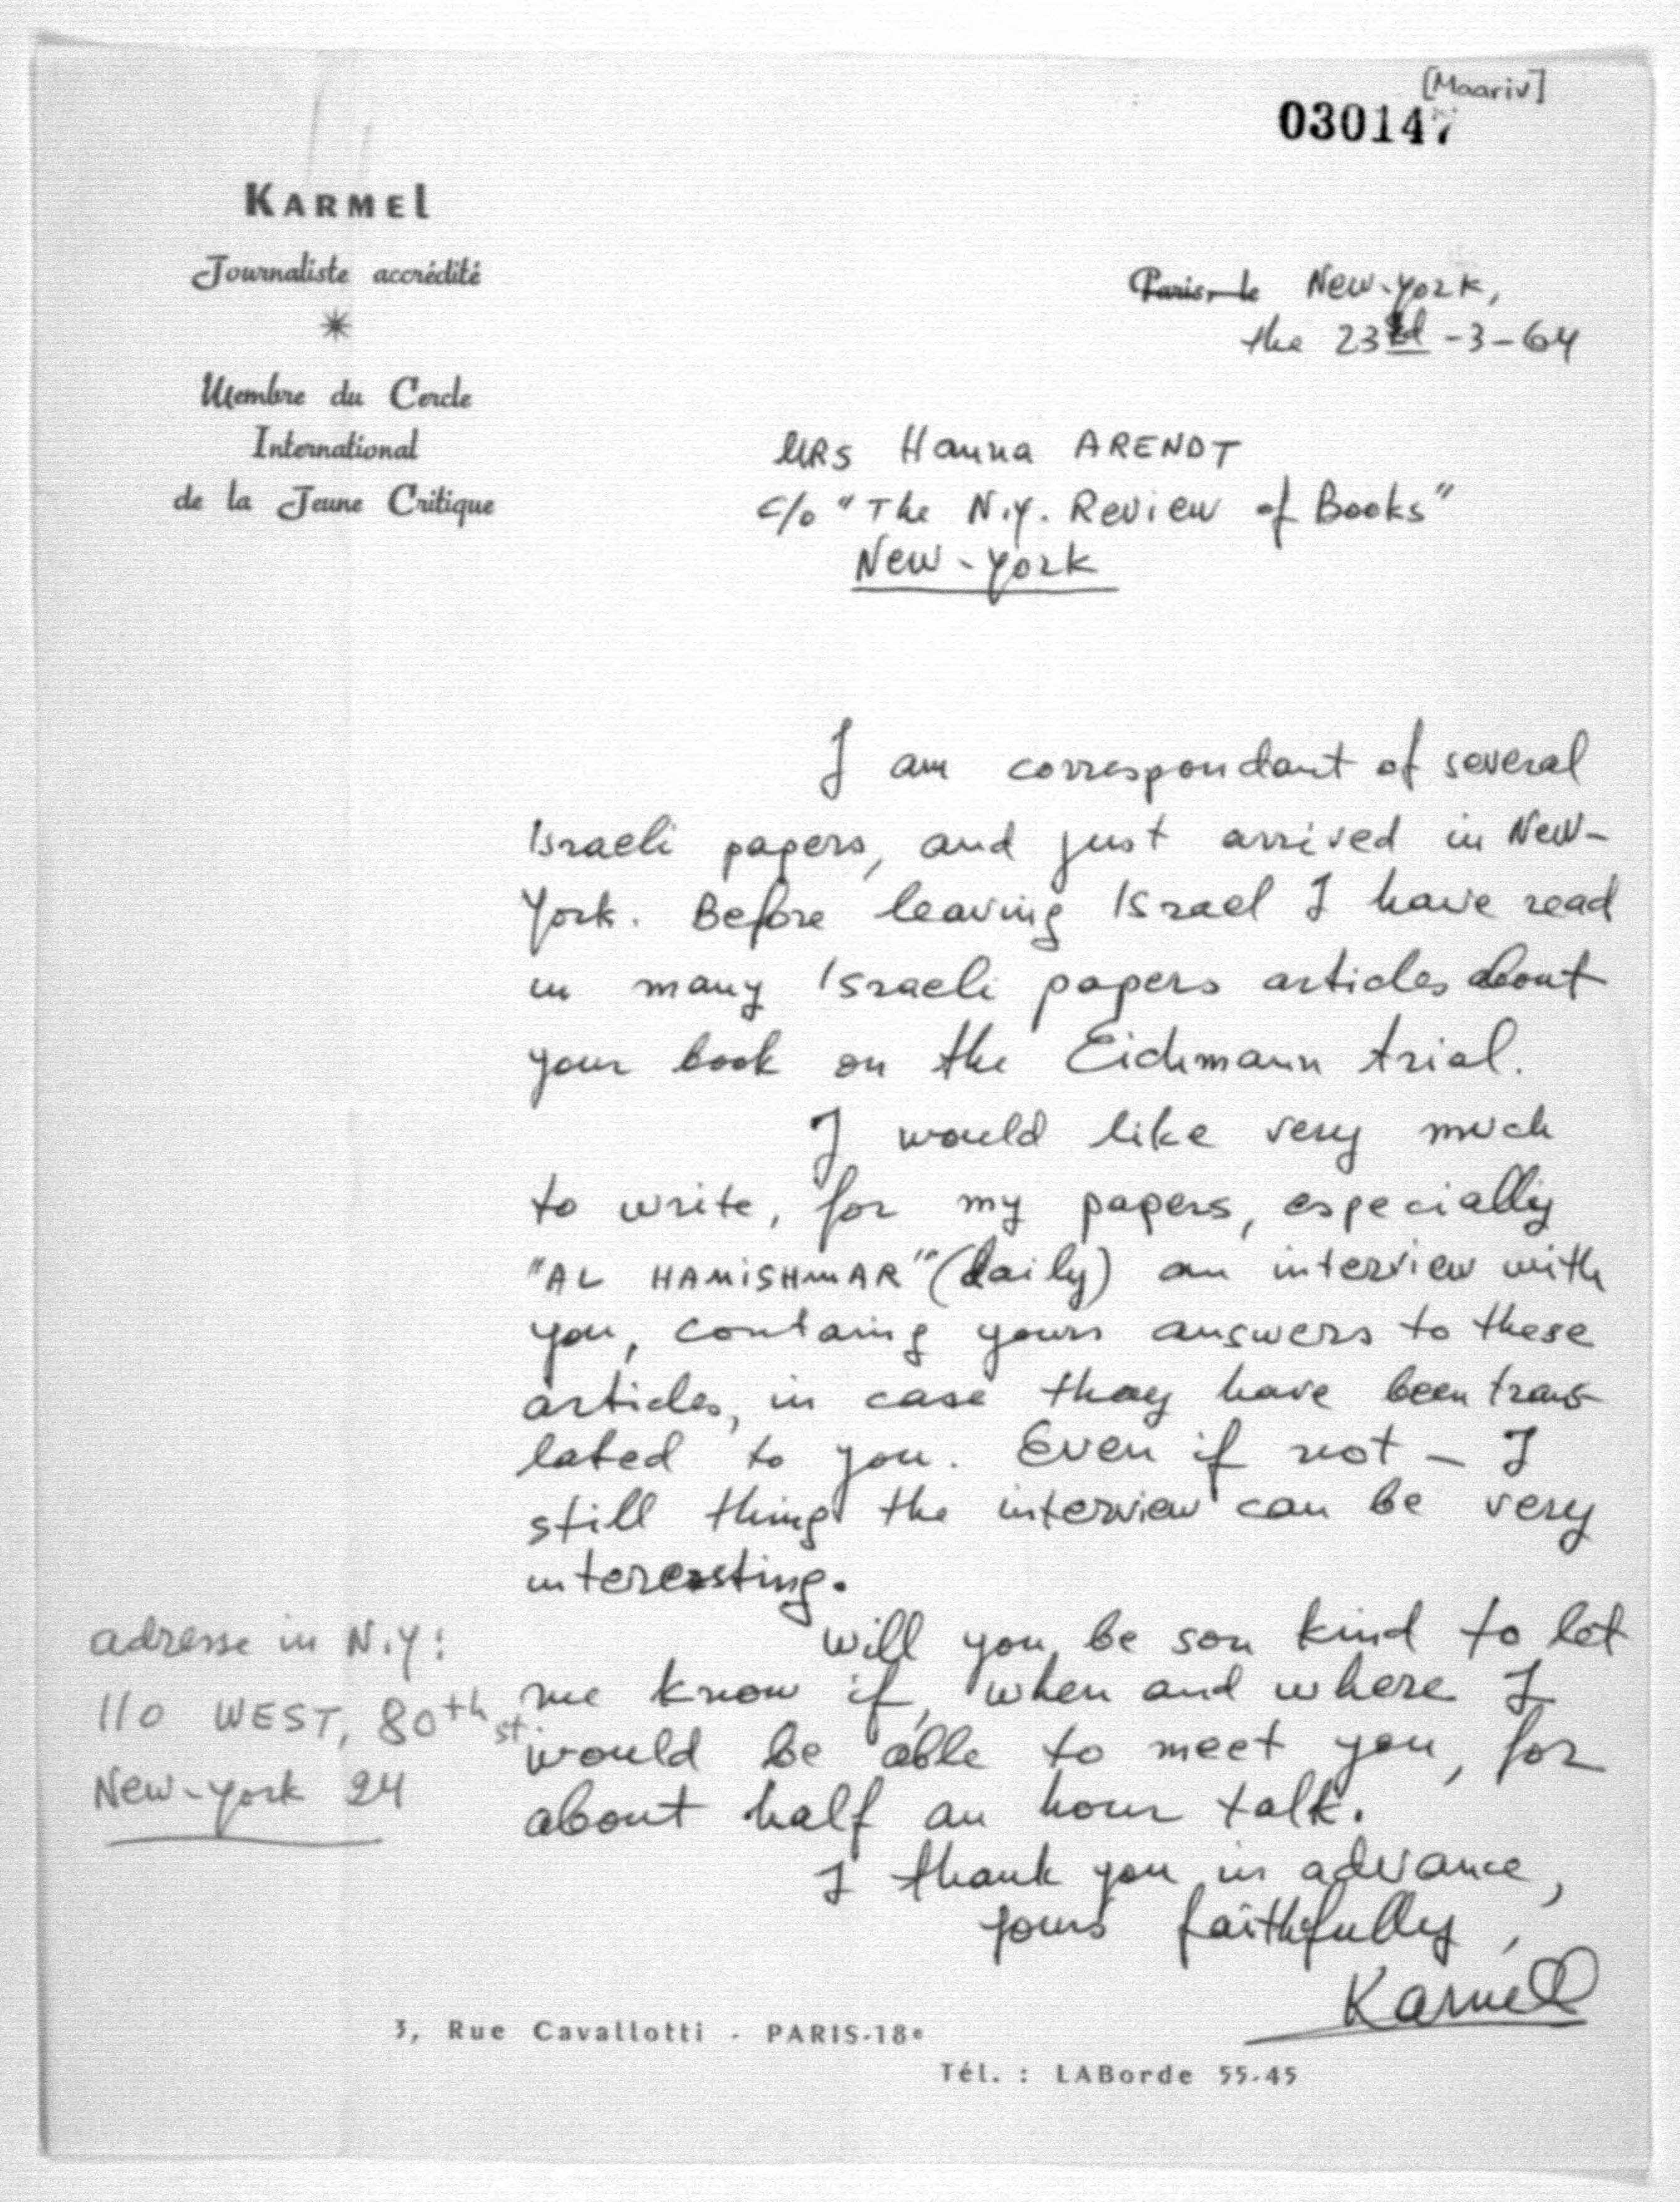 [Maariv]
030147
KARMEL
Journaliste accrédité
Membre du Cercle
International
de la Jeune Critique
Paris, le New-York,
the 23rd -3-64
MRS Hanna ARENDT
c/o "The N.Y. Review of Books"
New-York
I am correspondant of several
Israeli papers, and just arrived in New-
York. Before leaving Israel I have read
in many Israeli papers articles about
your book on the Eichmann trial.
I would like very much
to write, for my papers, especially
"AL HAMISHMAR" (daily) an interview with
you, containg yours answers to these
articles, in case they have been trans-
lated to you. Even if not – I
still thing the interview can be very
interessting.
Will you be sou kind to let
me know if, when and where I
would be able to meet you, for
about half an hour talk.
I thank you in advance,
yours faithfully,
Karmel
adresse in N.Y:
110 WEST, 80th st.
New-York 24
3, Rue Cavallotti - PARIS-18e
Tél. : LABorde 55-45